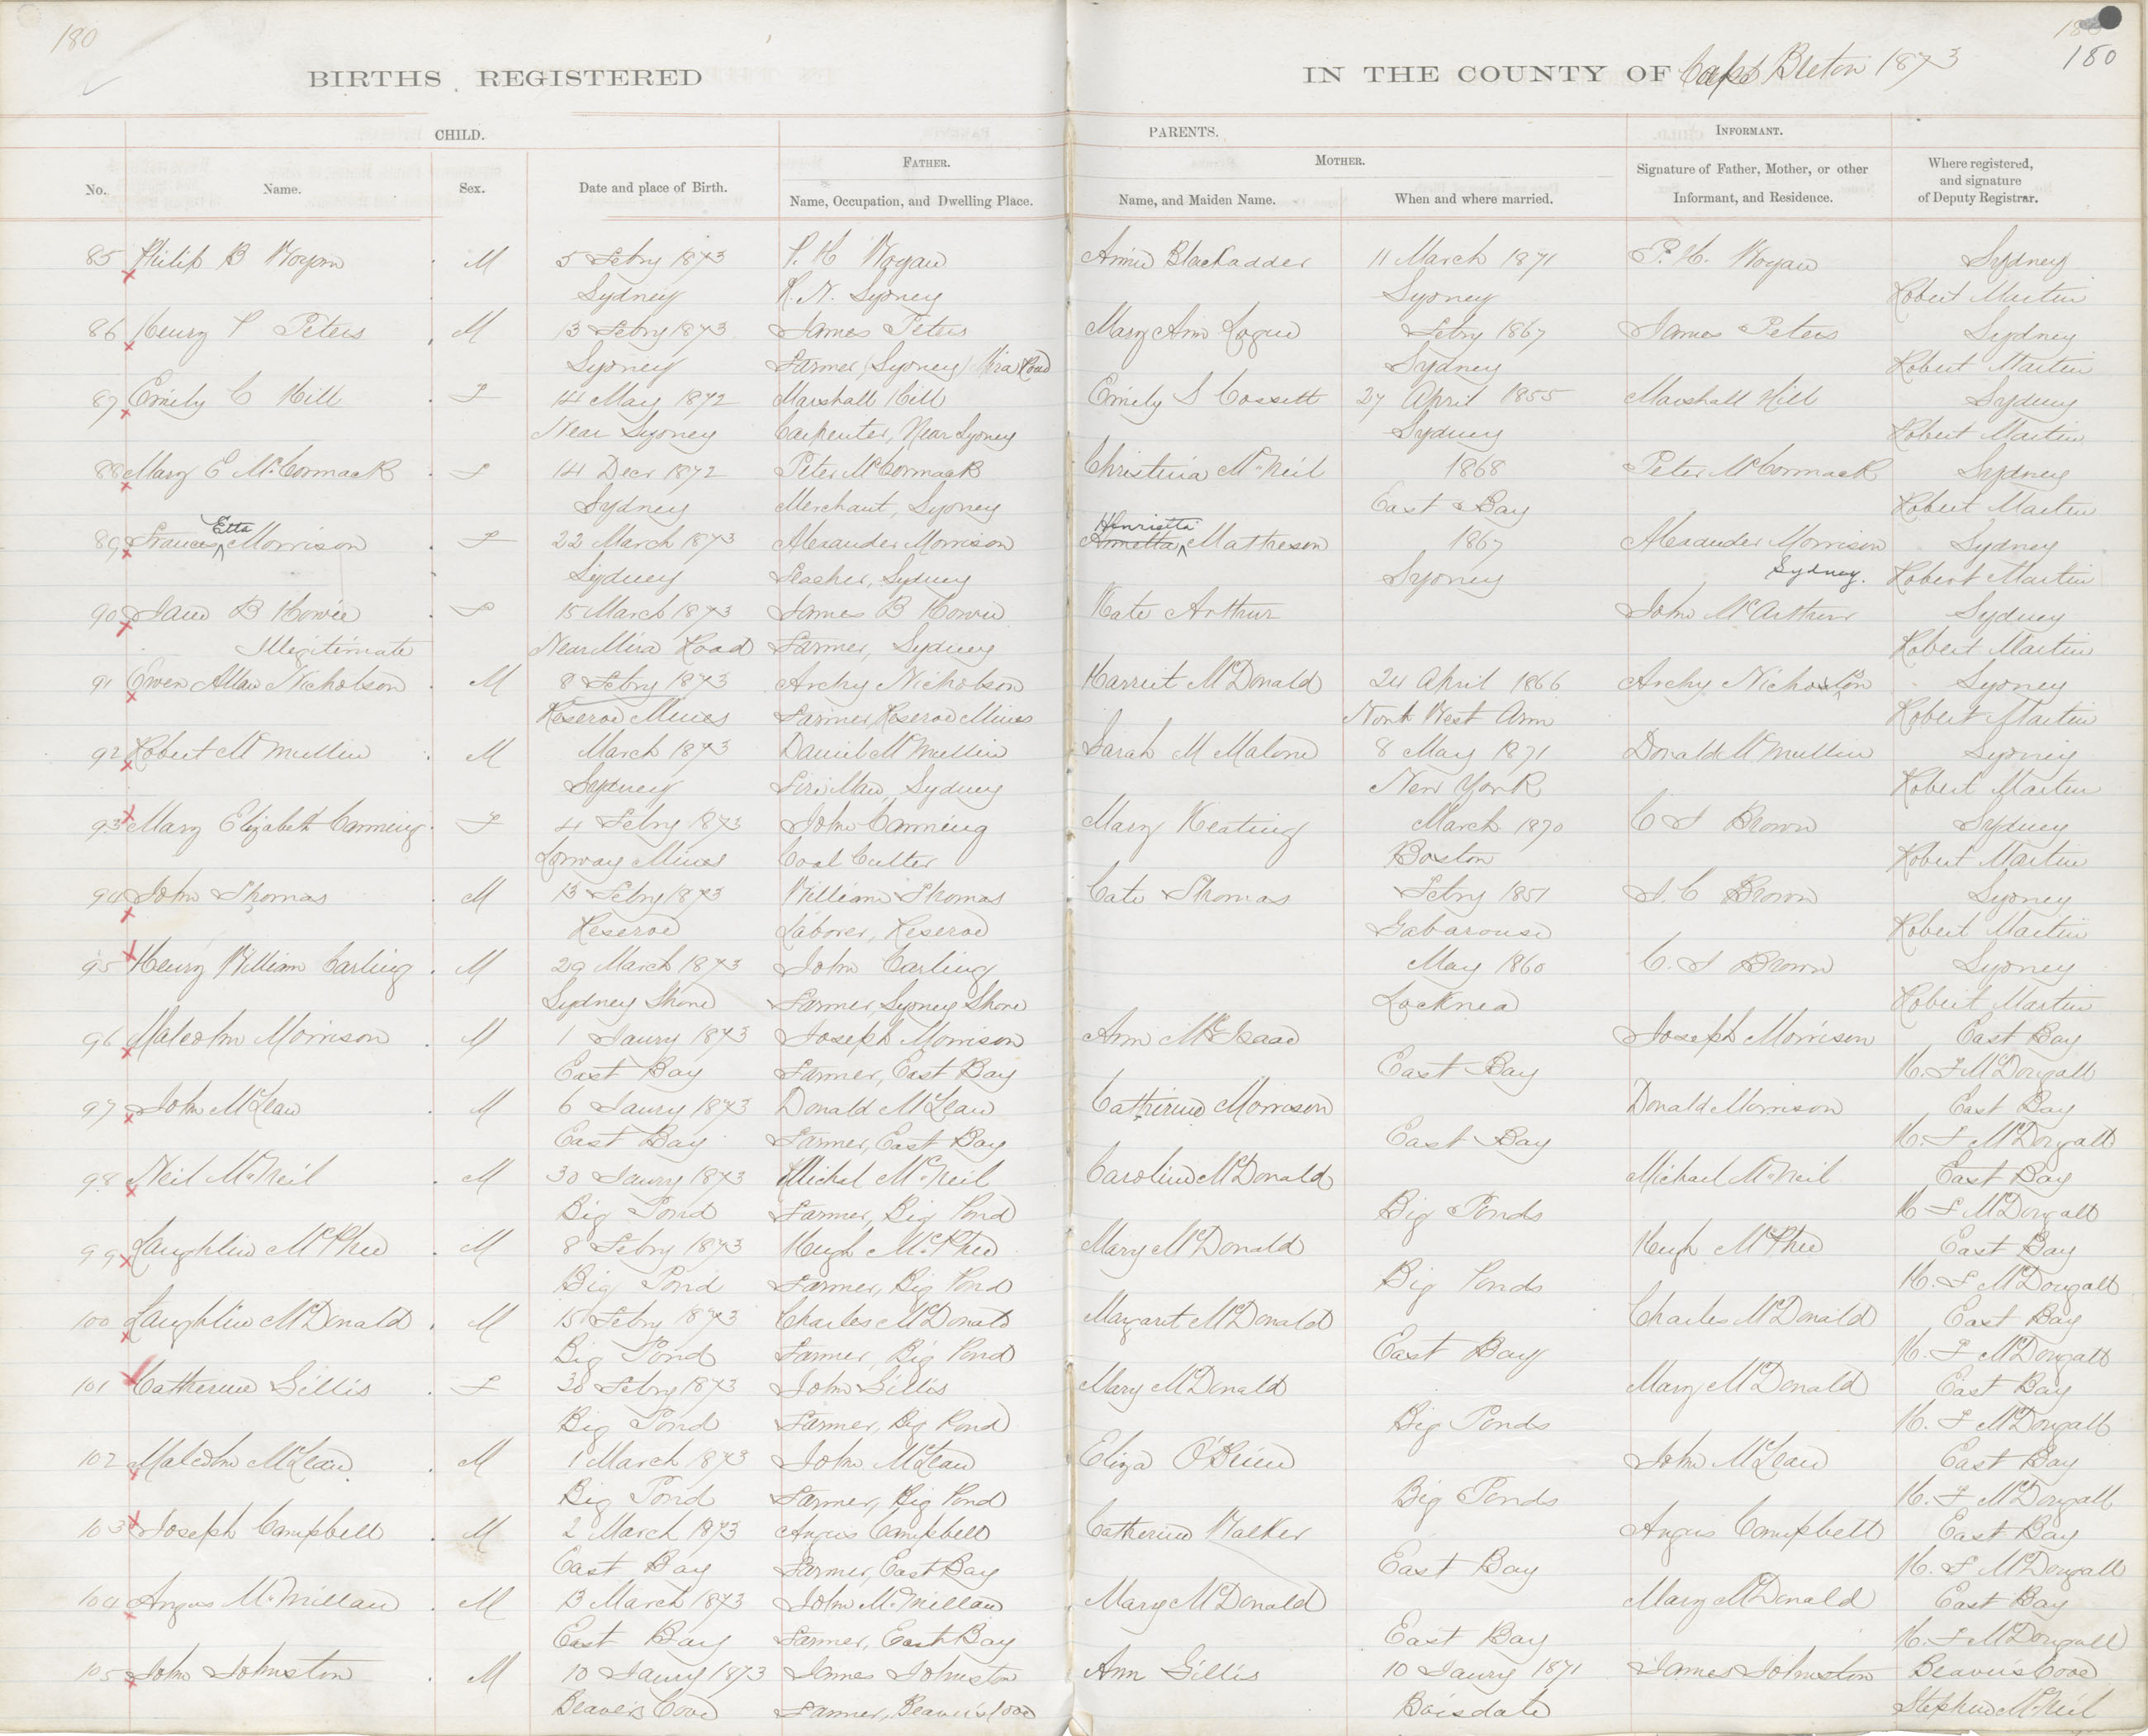 180
180
180
BIRTHS REGISTERED IN THE COUNTY OF Cape Breton 1873
CHILD. PARENTS. INFORMANT.
FATHER. MOTHER.
No. Name. Sex. Date and place of Birth. Name, Occupation, and Dwelling Place. Name, and Maiden Name. When and where married. Signature of Father, Mother, or other Informant, and Residence. Where registered, and signature of Deputy Registrar.
85 Philip B Wogan M 5 Febry 1873 P. H Wogan Annie Blackadder 11 March 1871 P. H. Wogan Sydney
Sydney R. N. Sydney Sydney Robert Martin
86 Henry P Peters M 13 Febry 1873 James Peters Mary Ann Logue Febry 1867 James Peters Sydney
Sydney Farmer (Sydney) Mira Road Sydney Robert Martin
87 Emily C Hill F 14 May 1872 Marshall Hill Emily S Cossett 27 April 1855 Marshall Hill Sydney
Near Sydney Carpenter, Near Sydney Sydney Robert Martin
88 Mary E McCormack F 14 Decr 1872 Peter McCormack Christina McNeil 1868 Peter McCormack Sydney
Sydney Merchant, Sydney East Bay Robert Martin
Etta Henrietta
89 Frances Morrison F 22 March 1873 Alexander Morrison Annetta Matheson 1867 Alexander Morrison Sydney
Sydney Teacher, Sydney Sydney Sydney. Robert Martin
90 Jane B Howie F 15 March 1873 James B Howie Kate Arthur John McArthur Sydney
Illegitimate Near Mira Road Farmer, Sydney Robert Martin
91 Ewen Allan Nicholson M 8 Febry 1873 Archy Nicholson Harriet McDonald 24 April 1866 Archy Nicholson Sydney
Reserve Mines Farmer, Reserve Mines North West Arm Robert Martin
92 Robert McMullin M March 1873 Daniel McMullin Sarah M Malone 8 May 1871 Donald McMullin Sydney
Sydney Fire Man, Sydney New York Robert Martin
93 Mary Elizabeth Canning F 4 Febry 1873 John Canning Mary Keating March 1870 C S Brown Sydney
Lorway Mines Coal Cutter Boston Robert Martin
94 John Thomas M 13 Febry 1873 William Thomas Cate Thomas Febry 1851 S. C Brown Sydney
Reserve Laborer, Reserve Gabarouse Robert Martin
95 Henry William Carling M 29 March 1873 John Carling May 1860 C. S Brown Sydney
Sydney Shore Farmer, Sydney Shore Locknea Robert Martin
96 Malcolm Morrison M 1 Jaury 1873 Joseph Morrison Ann McIsaac Joseph Morrison East Bay
East Bay Farmer, East Bay East Bay H. F McDougall
97 John McLean M 6 Jaury 1873 Donald McLean Catherine Morrison Donald Morrison East Bay
East Bay Farmer, East Bay East Bay H. F McDougall
98 Neil McNeil M 30 Jaury 1873 Michel McNeil Caroline McDonald Michael McNeil East Bay
Big Pond Farmer, Big Pond Big Ponds H F McDougall
99 Laughlin McPhee M 8 Febry 1873 Hugh McPhee Mary McDonald Hugh McPhee East Bay
Big Pond Farmer, Big Pond Big Ponds H. F McDougall
100 Laughlin McDonald M 15 Febry 1873 Charles McDonald Margaret McDonald Charles McDonald East Bay
Big Pond Farmer, Big Pond East Bay H. F McDougall
101 Catherine Gillis F 30 Febry 1873 John Gillis Mary McDonald Mary McDonald East Bay
Big Pond Farmer, Big Pond Big Ponds H. F McDougall
102 Malcolm McLean M 1 March 1873 John McLean Eliza O'Brien John McLean East Bay
Big Pond Farmer, Big Pond Big Ponds H. F McDougall
103 Joseph Campbell M 2 March 1873 Angus Campbell Catherine Walker Angus Campbell East Bay
East Bay Farmer, East Bay East Bay H. F McDougall
104 Angus McMillan M 13 March 1873 John McMillan Mary McDonald Mary McDonald East Bay
East Bay Farmer, East Bay East Bay H. F McDougall
105 John Johnston M 10 Jaury 1873 James Johnston Ann Gillis 10 Jaury 1871 James Johnston Beaver's Cove
Beaver's Cove Farmer, Beaver's Cove Boisdale Stephen McNeil